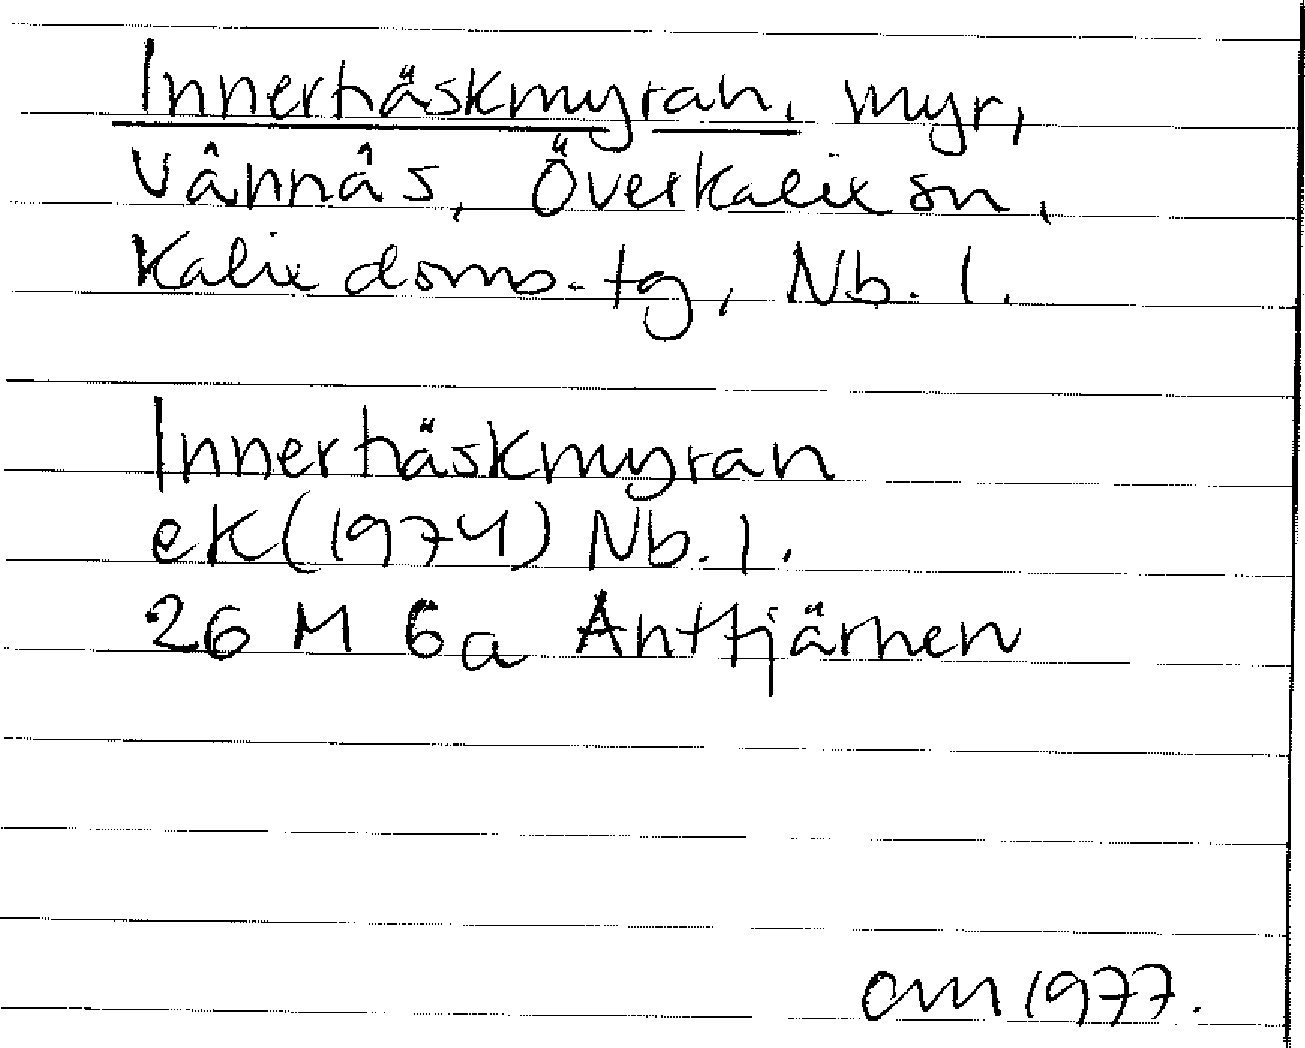 Innerhäskmyran, myr,
Vånnås, Överkalix sn,
Kalix doms.tg, Nb. l.
Innerhäskmyran
ek(1974) Nb. l.
26 M 6a Anttjärnen
om 1977.